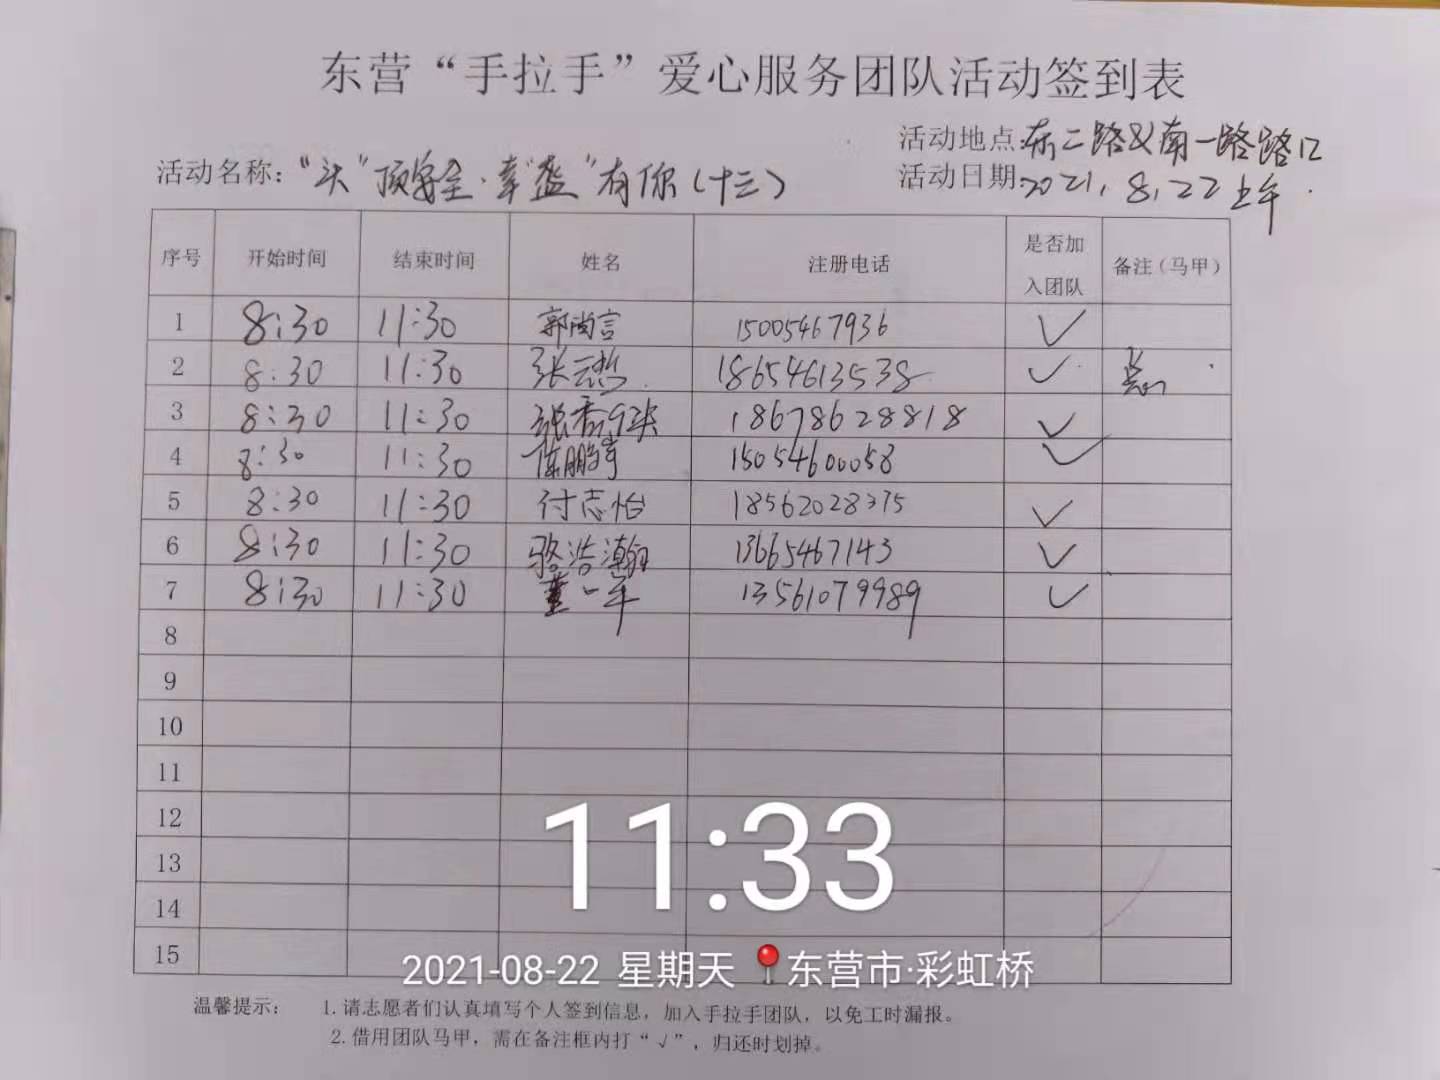 东营“手拉手”爱心服务团队活动签到表
活动地点:东二路与南一路路口
活动名称:“头”顶安全·幸“盔”有你(十三)
活动日期:2021.8.22上午
序号 开始时间 结束时间 姓名 注册电话 是否加入团队 备注(马甲)
1 8:30 11:30 郭尚言 15005467936 ✓
2 8:30 11:30 张云哲 18654613538 ✓
3 8:30 11:30 张香 18678628818 ✓
4 8:30 11:30 陈鹏 15054600058 ✓
5 8:30 11:30 付志怡 18562028375 ✓
6 8:30 11:30 骆浩瀚 13665467143 ✓
7 8:30 11:30 董一平 13561079989 ✓
8
9
10
11
12
13
14
15
11:33
2021-08-22 星期天 东营市·彩虹桥
温馨提示: 1.请志愿者们认真填写个人签到信息,加入手拉手团队,以免工时漏报。
2.借用团队马甲,需在备注框内打“√”,归还时划掉。